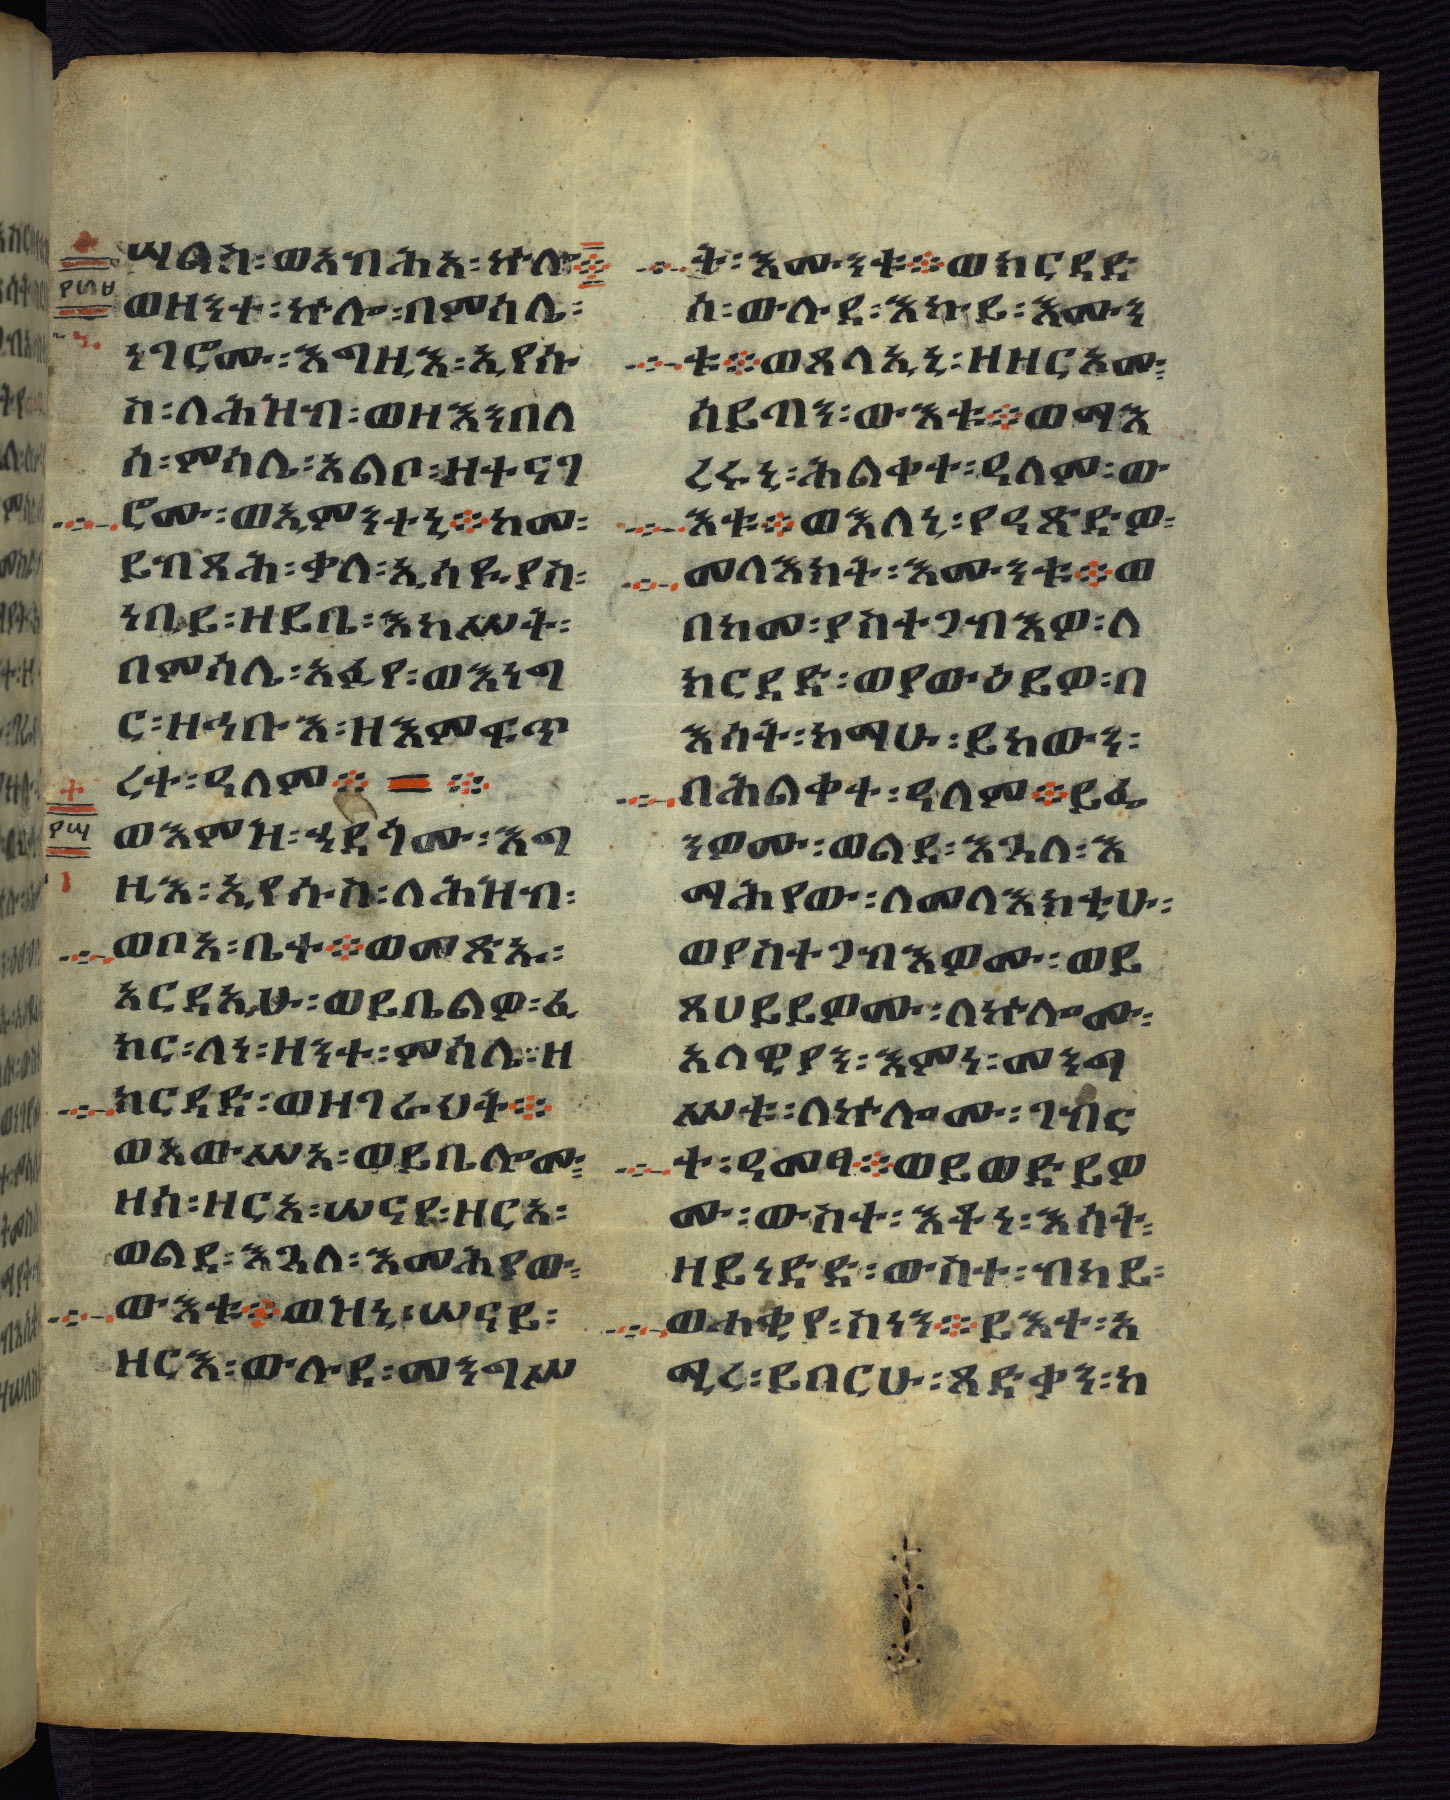 ሣልስ፡ወአብሕአ፡ኵሎ፨
፻፴፱
ወዘንተ፡ኵሎ፡በምሳሌ፡
ነገሮሙ፡እግዚእ፡ኢየሱ
ስ፡ለሕዝብ፡ወዘእንበለ
ሰ፡ምሳሌ፡አልቦ፡ዘተናገ
ሮሙ፡ወኢምንተኒ፨ከመ፡
ይብጻሕ፡ቃለ፡ኢሳይያስ፡
ነቢይ፡ዘይቤ፡እከሥት፡
በምሳሌ፡አፉየ፡ወእነግ
ር፡ዘኅቡእ፡ዘእምፍጥ
ረተ፡ዓለም፨ ፨
፻፵
ወእምዝ፡ኀደጎሙ፡እግ
ዚእ፡ኢየሱስ፡ለሕዝብ፡
ወቦአ፡ቤተ፨ወመጽኡ፡
አርዳኢሁ፡ወይቤልዎ፡ፈ
ክር፡ለነ፡ዘንተ፡ምሳሌ፡ዘ
ክርዳድ፡ወዘገራህት፨
ወአውሥአ፡ወይቤሎሙ፡
ዘሰ፡ዘርአ፡ሠናየ፡ዘርአ፡
ወልደ፡እጓለ፡እመሕያው፡
ውእቱ፨ወዝኒ፡ሠናይ፡
ዘርእ፡ውሉደ፡መንግሥ
ት፡እሙንቱ፨ወክርዳድ
ሰ፡ውሉደ፡እኩይ፡እሙን
ቱ፨ወጸላኢኒ፡ዘዘርአሙ፡
ሰይጣን፡ውእቱ፨ወማእ
ረሩኒ፡ሕልቀተ፡ዓለም፡ው
እቱ፨ወእለኒ፡የዓጽድዎ፡
መላእክት፡እሙንቱ፨ወ
በከመ፡ያስተጋብእዎ፡ለ
ክርዳድ፡ወያውዕይዎ፡በ
እሳት፡ከማሁ፡ይከውን፡
በሕልቀተ፡ዓለም፨ይፌ
ንዎሙ፡ወልደ፡እጓለ፡እ
ማሕያው፡ለመላእክቲሁ፡
ወያስተጋብእዎሙ፡ወይ
ጸሀይይዎሙ፡ለኵሎሙ፡
አለዊያን፡እምነ፡መንግ
ሥቱ፡ለኵሎሙ፡ገብር
ተ፡ዓመፃ፨ወይወድይዎ
ሙ፡ውስተ፡እቶነ፡እሳት፡
ዘይነድድ፡ውስተ፡ብካይ፡
ወሐቂየ፡ስነን፨ይእተ፡አ
ሚረ፡ይበርሁ፡ጻድቃን፡ከ